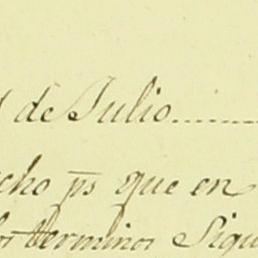 de Julio........
cho ps que en
los terminos Sigu